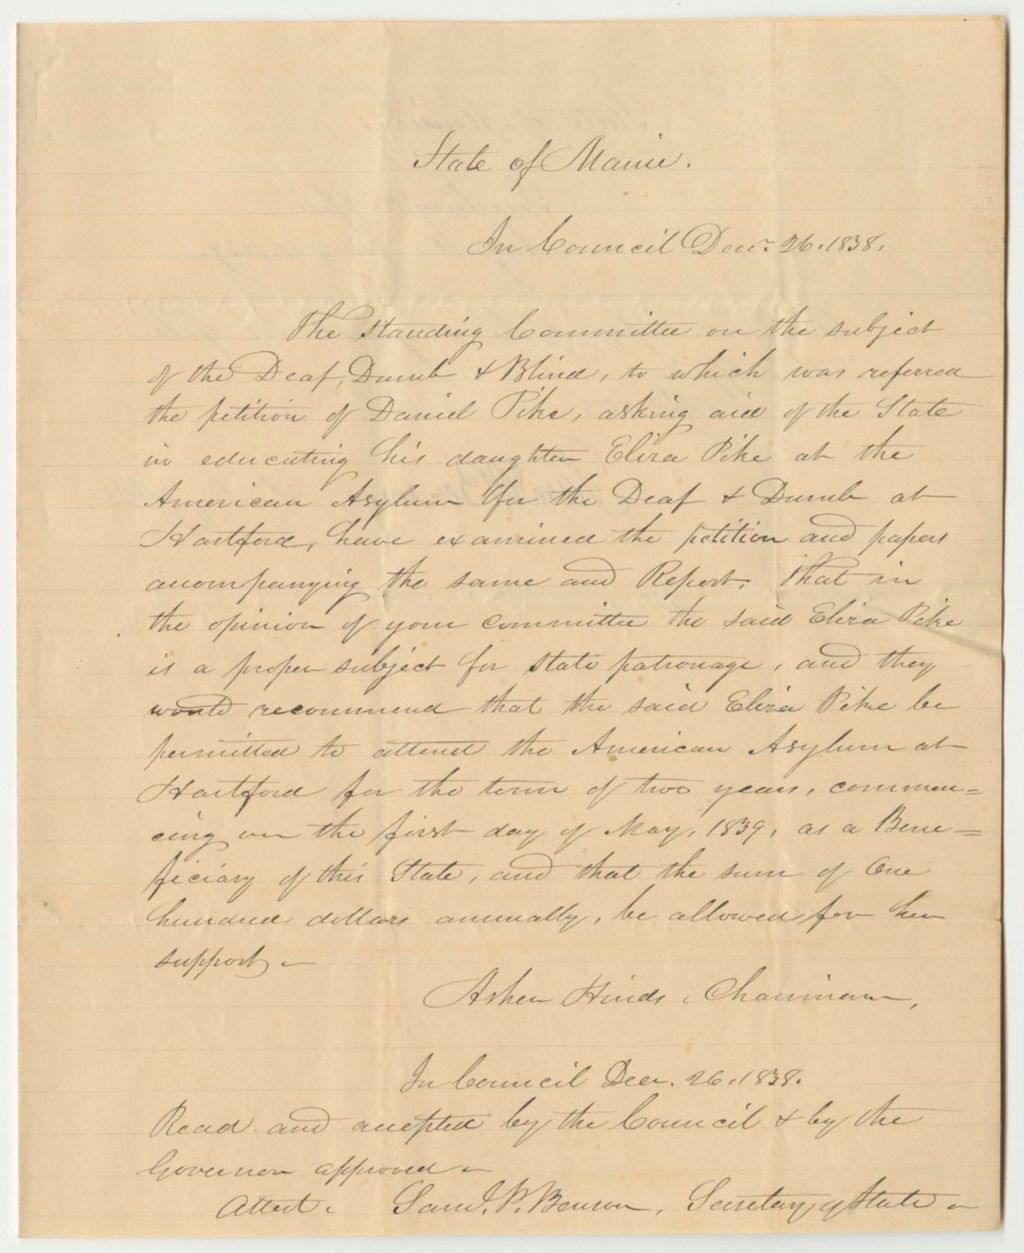 State of Maine.
In Council Decr. 26. 1838.
The Standing Committee on the subject
of the Deaf, Dumb & Blind, to which was referred
the petition of Daniel Pike, asking aid of the State
in educating his daughter Eliza Pike at the
American Asylum for the Deaf & Dumb at
Hartford, have examined the petition and papers
accompanying the same and Report. That in
the opinion of your committee the said Eliza Pike
is a proper subject for State patronage, and they
would recommend that the said Eliza Pike be
permitted to attend the American Asylum at
Hartford for the term of two years, commen=
cing on the first day of May, 1839, as a Bene=
ficiary of this State, and that the sum of One
hundred dollars annually, be allowed for her
support.
Asher Hinds, Chairman,
In Council Decr. 26. 1838.
Read and accepted by the Council & by the
Governor approved
Attest. Saml. P. Benson, Secretary of State